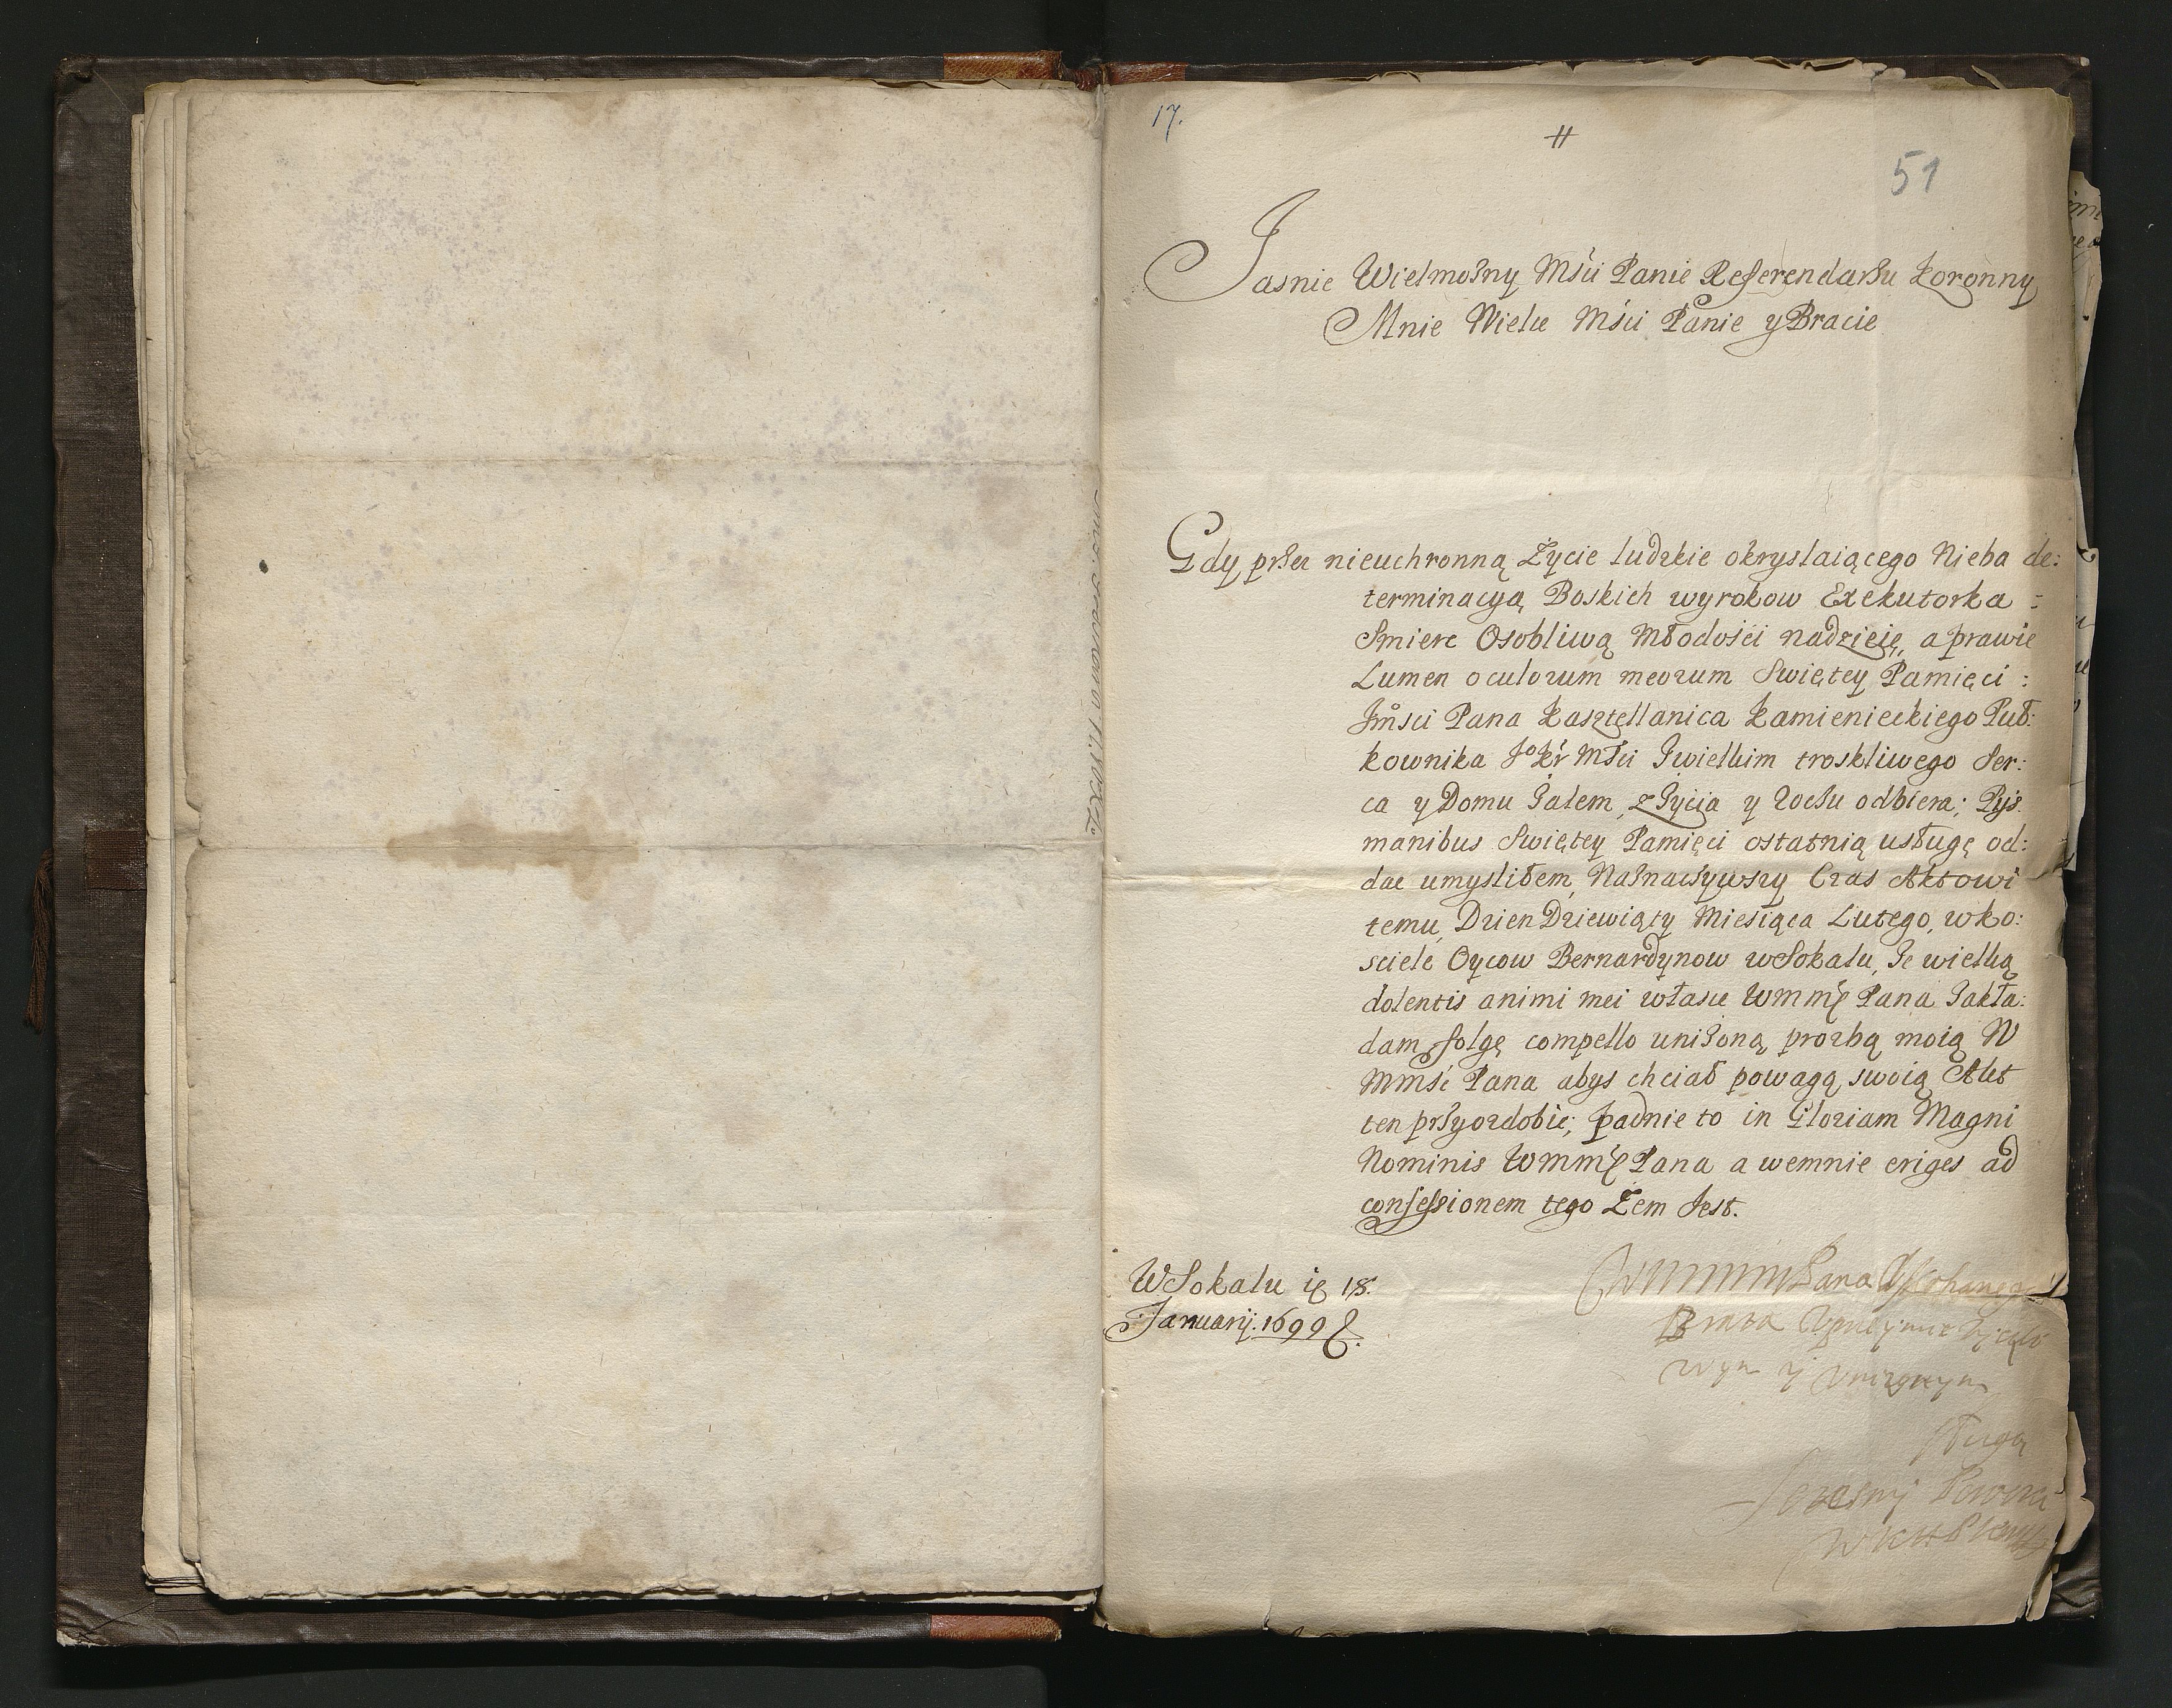 17.
51
Jasnie Wielmożny Mści Panie Referendarżu Koronny
Mnie Wielce Mści Panie y Bracie
Gdy przez nieuchronną Życie ludzkie okryslaiącego Nieba de:
terminacyą Boskich wyrokow Exekutorka :
Smierc Osobliwą Młodości nadzieię, a prawie
Lumen oculorum meorum Swiętey Pamięci :
Jmści Pana Kasztellanica Kamienieckiego Puł:
kownika JoKr Mści Zwielkim troskliwego Ser:
ca y Domu żalem, z Życia y Zochu odbiera; Pijs
manibus Swiętey Pamięci ostatnią usługę od:
dac umysliłem, Naznaczywszy Czas Aktowi
temu, Dzien Dziewiąty Miesiąca Lutego, wko:
sciele Oycow Bernardynow wSokalu, Ze wielką
dolentis animi mei własce WMM Pana Zakła:
dam folgę compello uniżoną prozbą moią W
Mmść Pana abys chciał powagą swoią Akt
ten przyozdobic; padnie to in Gloriam Magni
Nominis WMM Pana a wemnie eriges ad
confessionem tego Żem Jest.
WSokalu 18.
Januarij. 1699
Pana
Brata
wym y Unizonym
sługą